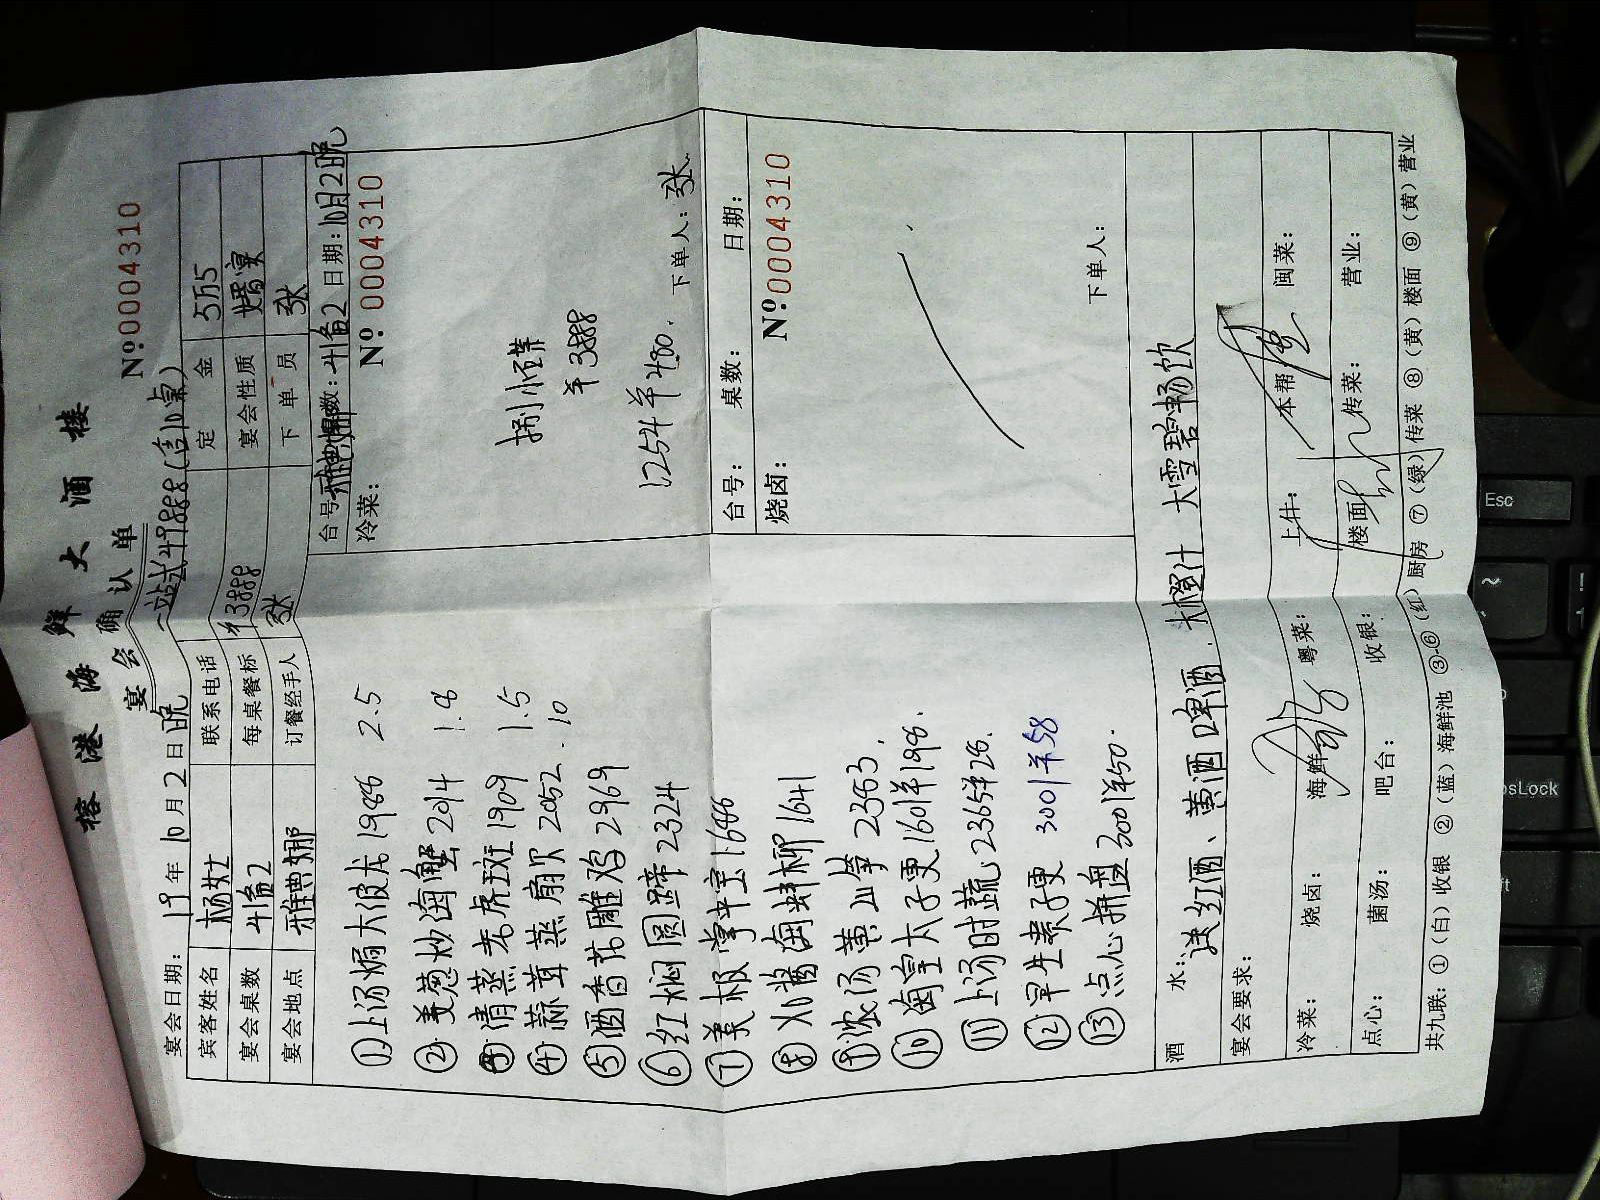 榕港海鲜大酒楼
宴会确认单
Nº0004310
宴会日期: 19年10月2日晚 一站式49888(含10桌)
宾客姓名 杨女士 联系电话 定金 5万5
宴会桌数 4备2 每桌餐标 ¥3888 宴会性质 婚宴
宴会地点 雅典娜 订餐经手人 张 下单员 张
台号: 雅典娜 桌数: 4备2 日期: 10月2晚
冷菜: Nº 0004310
捌小碟
¥3888
1254半480.
下单人: 张
①上汤焗大波龙1986 2.5
②姜葱炒海蟹2014 1.8
③清蒸老虎斑1909 1.5
④蒜茸蒸扇贝2052. 10
⑤酒香花雕鸡2969
⑥红焖圆蹄2324
⑦美极掌中宝1686
⑧XO酱海蚌柳1641
⑨浓汤黄山笋2383.
⑩海皇太子更1601半198.
⑪上汤时蔬.2365半28.
⑫早生贵子更 3001半58
⑬点心拼盘3001半50.
台号: 桌数: 日期:
烧卤: Nº0004310
下单人:
酒水: 送红酒、黄酒啤酒.大橙汁 大雪碧畅饮
宴会要求:
冷菜: 烧卤: 海鲜: 粤菜: 上件: 本帮: 闽菜:
点心: 菌汤: 吧台: 收银: 楼面: 传菜: 营业:
共九联: ①(白)收银 ②(蓝)海鲜池 ③-⑥(红)厨房 ⑦(绿)传菜 ⑧(黄)楼面 ⑨(黄)营业
Esc